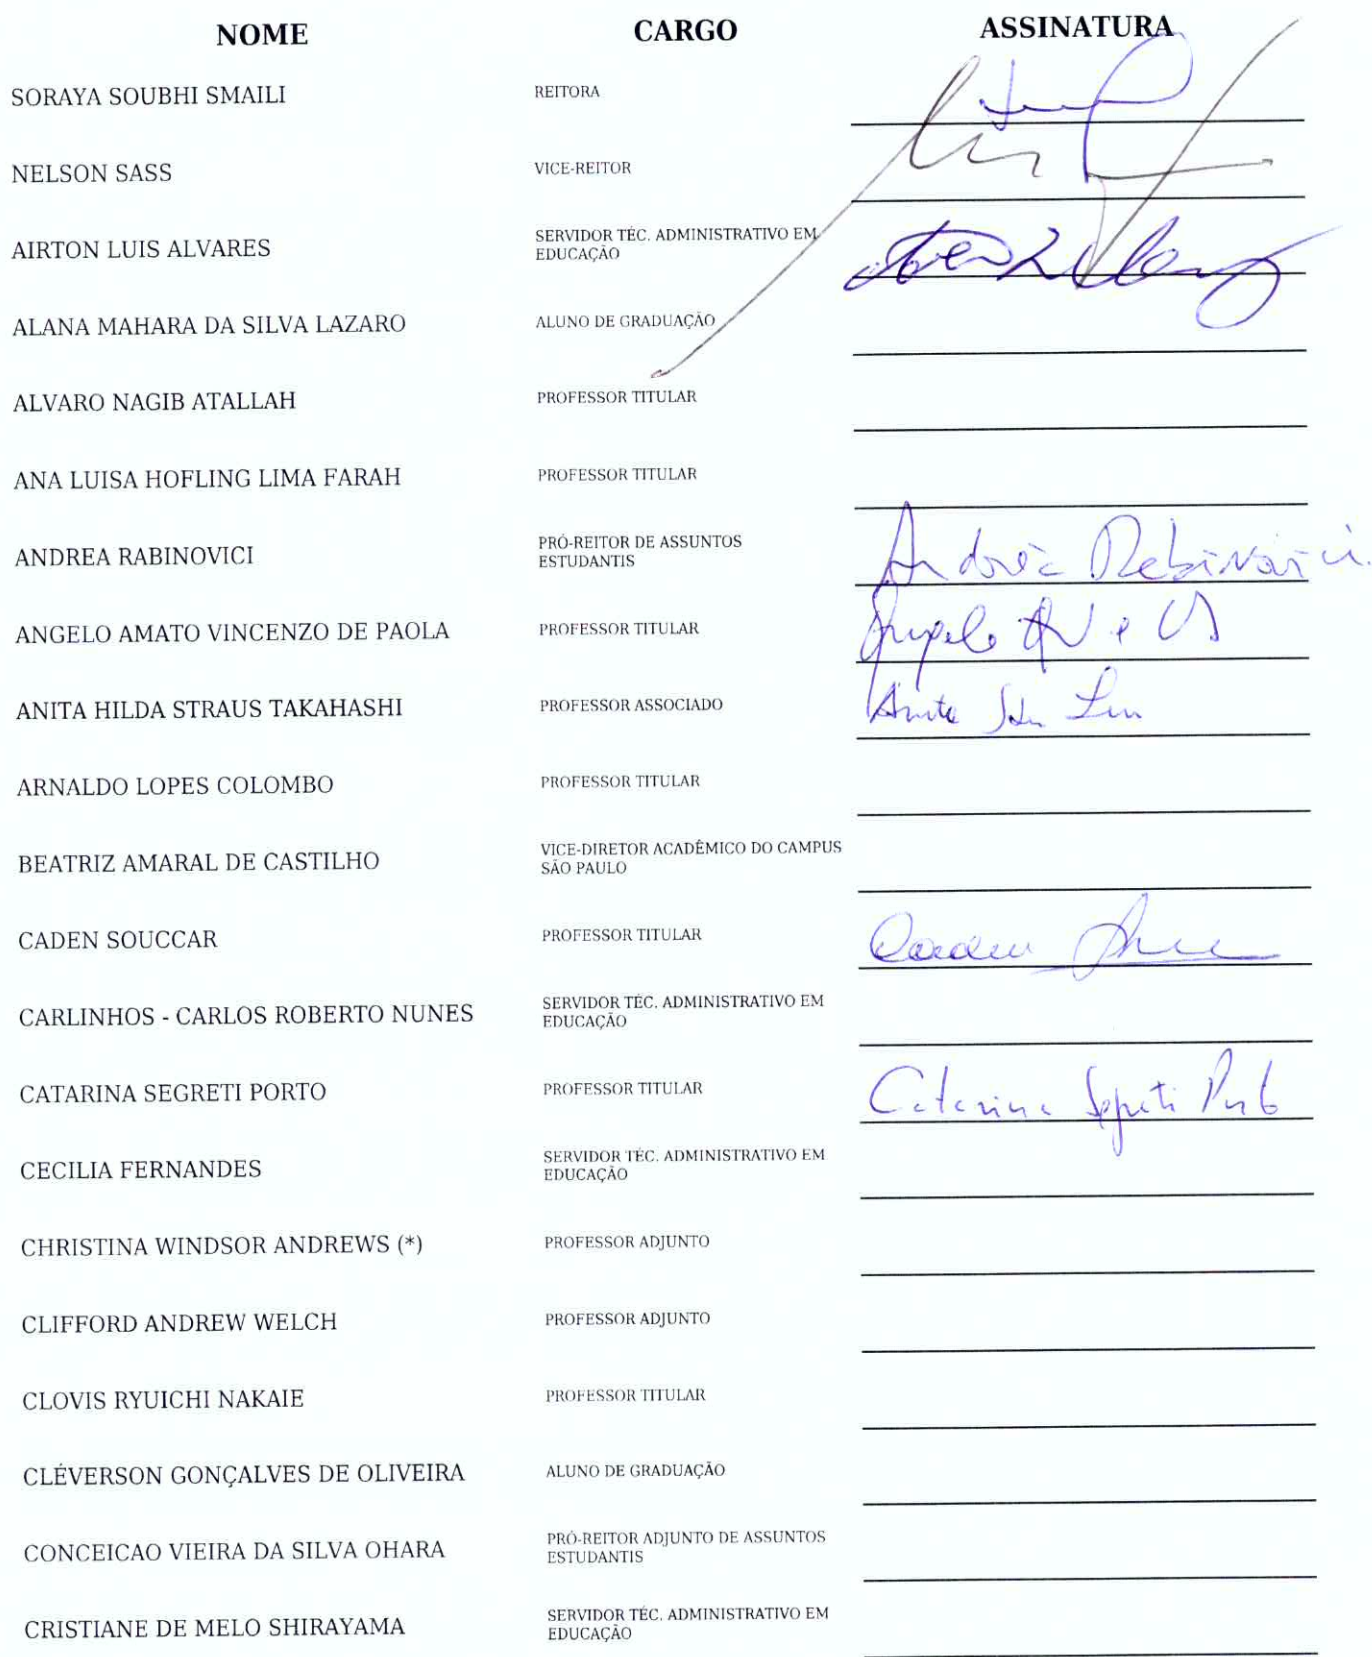 NOME CARGO ASSINATURA
SORAYA SOUBHI SMAILI REITORA
NELSON SASS VICE-REITOR
AIRTON LUIS ALVARES SERVIDOR TÉC. ADMINISTRATIVO EM
EDUCAÇÃO
ALANA MAHARA DA SILVA LAZARO ALUNO DE GRADUAÇÃO
ALVARO NAGIB ATALLAH PROFESSOR TITULAR
ANA LUISA HOFLING LIMA FARAH PROFESSOR TITULAR
ANDREA RABINOVICI PRÓ-REITOR DE ASSUNTOS
ESTUDANTIS
Andréa Rabinovici
ANGELO AMATO VINCENZO DE PAOLA PROFESSOR TITULAR Angelo
ANITA HILDA STRAUS TAKAHASHI PROFESSOR ASSOCIADO Anita
ARNALDO LOPES COLOMBO PROFESSOR TITULAR
BEATRIZ AMARAL DE CASTILHO VICE-DIRETOR ACADÊMICO DO CAMPUS
SÃO PAULO
CADEN SOUCCAR PROFESSOR TITULAR Caden
CARLINHOS - CARLOS ROBERTO NUNES SERVIDOR TÉC. ADMINISTRATIVO EM
EDUCAÇÃO
CATARINA SEGRETI PORTO PROFESSOR TITULAR Catarina Segreti Porto
CECILIA FERNANDES SERVIDOR TÉC. ADMINISTRATIVO EM
EDUCAÇÃO
CHRISTINA WINDSOR ANDREWS (*) PROFESSOR ADJUNTO
CLIFFORD ANDREW WELCH PROFESSOR ADJUNTO
CLOVIS RYUICHI NAKAIE PROFESSOR TITULAR
CLÉVERSON GONÇALVES DE OLIVEIRA ALUNO DE GRADUAÇÃO
CONCEICAO VIEIRA DA SILVA OHARA PRÓ-REITOR ADJUNTO DE ASSUNTOS
ESTUDANTIS
CRISTIANE DE MELO SHIRAYAMA SERVIDOR TÉC. ADMINISTRATIVO EM
EDUCAÇÃO